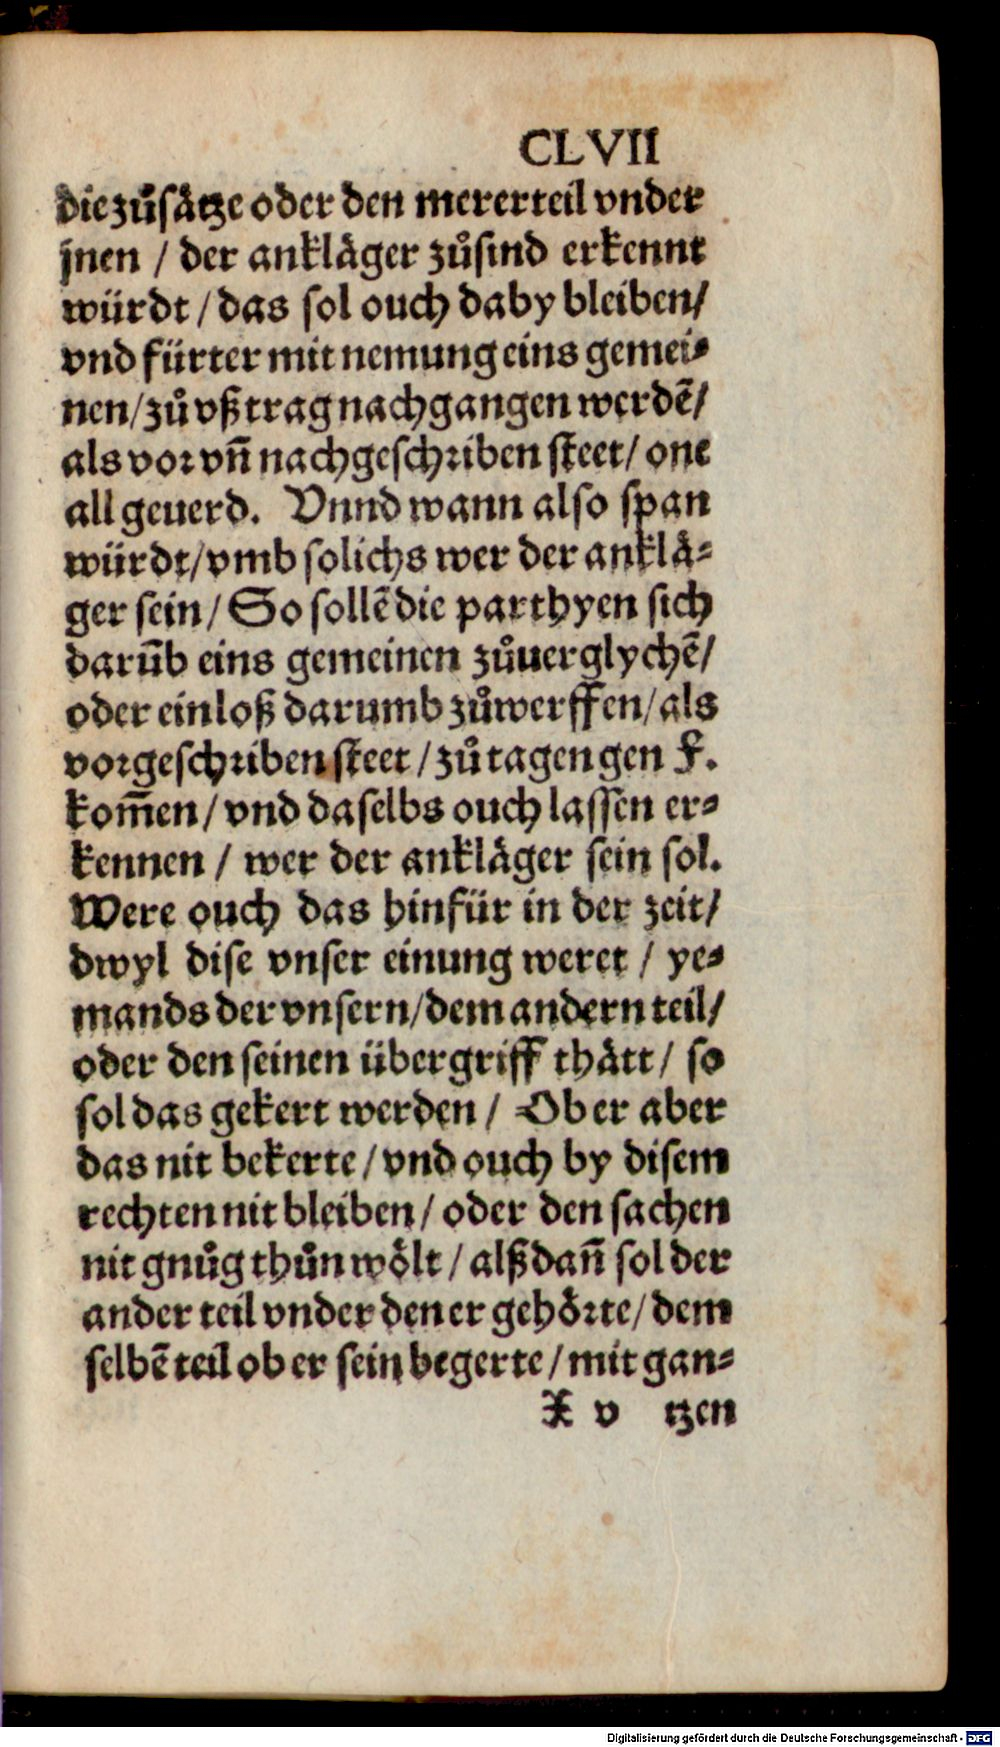 CLVII
die zůsåtze oder den mererteil vnder
jnen / der anklåger zůsind erkennt
würdt / das sol ouch daby bleiben /
vnd fürter mit nemung eins gemei⸗
nen / zů vßtrag nachgangen werdẽ /
als vor vñ nachgeschriben steet / one
all geuerd. Vnnd wann also span
würdt / vmb solichs wer der anklå⸗
ger sein / So sollẽ die parthyen sich
darũb eins gemeinen zůuerglychẽ /
oder ein loß darumb zůwerffen / als
vorgeschriben steet / zů tagen gen F.
kom̃en / vnd daselbs ouch lassen er⸗
kennen / wer der anklåger sein sol.
Were ouch das hinfür in der zeit /
dwyl dise vnser einung weret / ye⸗
mands der vnsern / dem andern teil /
oder den seinen übergriff thått / so
sol das gekert werden / Ob er aber
das nit bekerte / vnd ouch by disem
rechten nit bleiben / oder den sachen
nit gnůg thůn wo̊lt / alßdañ sol der
ander teil vnder den er geho̊rte / dem
selbẽ teil ob er sein begerte / mit gan⸗
X v tzen
Digitalisierung gefördert durch die Deutsche Forschungsgemeinschaft - DFG